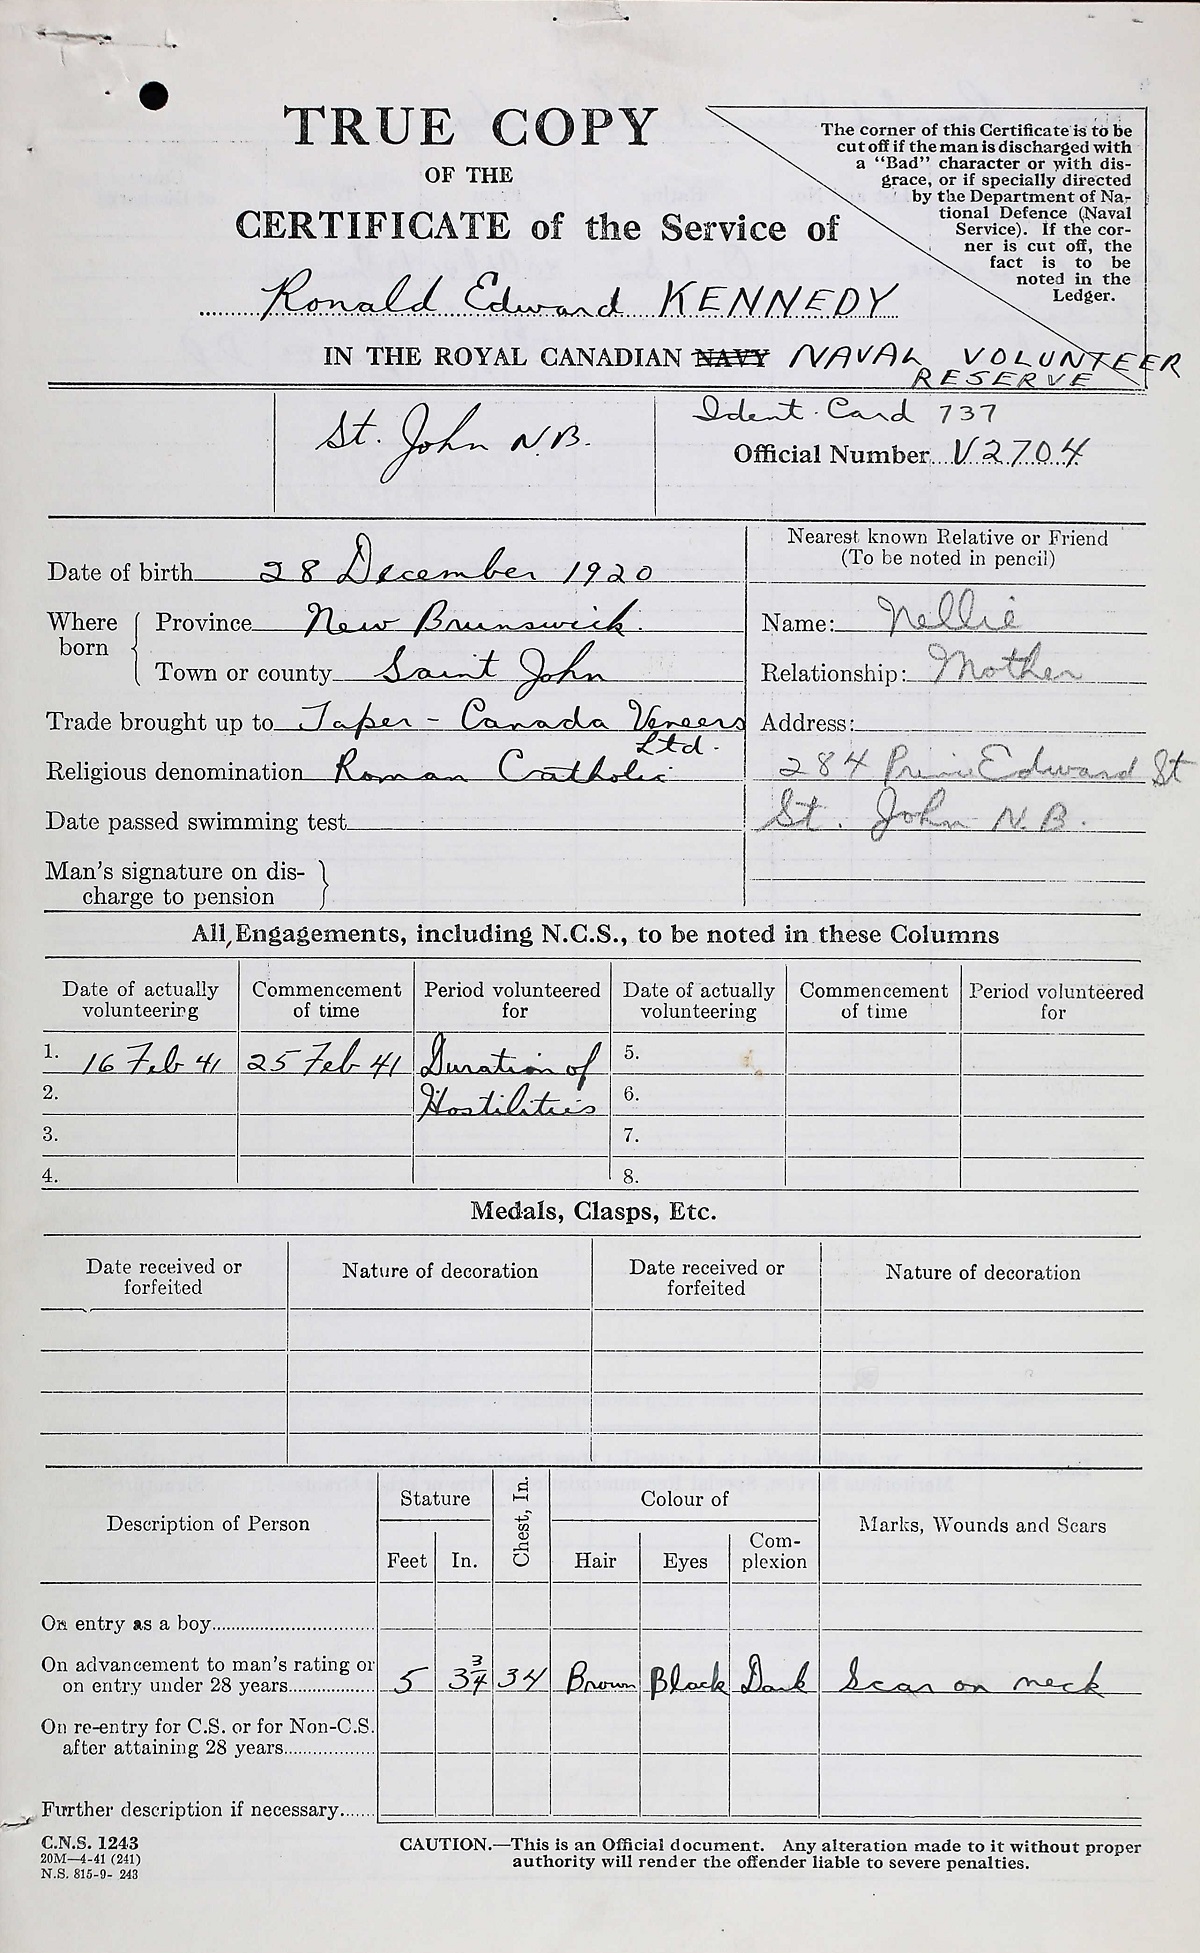 TRUE COPY
OF THE
CERTIFICATE of the Service of
Ronald Edward KENNEDY
IN THE ROYAL CANADIAN NAVY NAVAL VOLUNTEER
RESERVE
The corner of this Certificate is to be
cut off if the man is discharged with
a "Bad" character or with dis-
grace, or if specially directed
by the Department of Na-
tional Defence (Naval
Service). If the cor-
ner is cut off, the
fact is to be
noted in the
Ledger.
St. John N.B.
Ident. Card 737
Official Number V2704
Date of birth 28 December 1920
Where born
Province New Brunswick.
Town or county Saint John
Trade brought up to Taper - Canada Veneers
Ltd.
Religious denomination Roman Catholic
Date passed swimming test
Man's signature on dis-
charge to pension
Nearest known Relative or Friend
(To be noted in pencil)
Name: Nellie
Relationship: Mother
Address:
284 Edward St
St. John N.B.
All Engagements, including N.C.S., to be noted in these Columns
Date of actually volunteering Commencement of time Period volunteered for Date of actually volunteering Commencement of time Period volunteered for
1. 16 Feb 41 25 Feb 41 Duration of 5.
2. Hostilities 6.
3. 7.
4. 8.
Medals, Clasps, Etc.
Date received or forfeited Nature of decoration Date received or forfeited Nature of decoration
Description of Person Stature Chest, In. Colour of Marks, Wounds and Scars
Feet In. Hair Eyes Com-
plexion
On entry as a boy
On advancement to man's rating or
on entry under 28 years 5 3 3/4 34 Brown Black Dark Scar on neck
On re-entry for C.S. or for Non-C.S.
after attaining 28 years
Further description if necessary
C.N.S. 1243
20M—4-41 (241)
N.S. 815-9- 243
CAUTION.—This is an Official document. Any alteration made to it without proper
authority will render the offender liable to severe penalties.